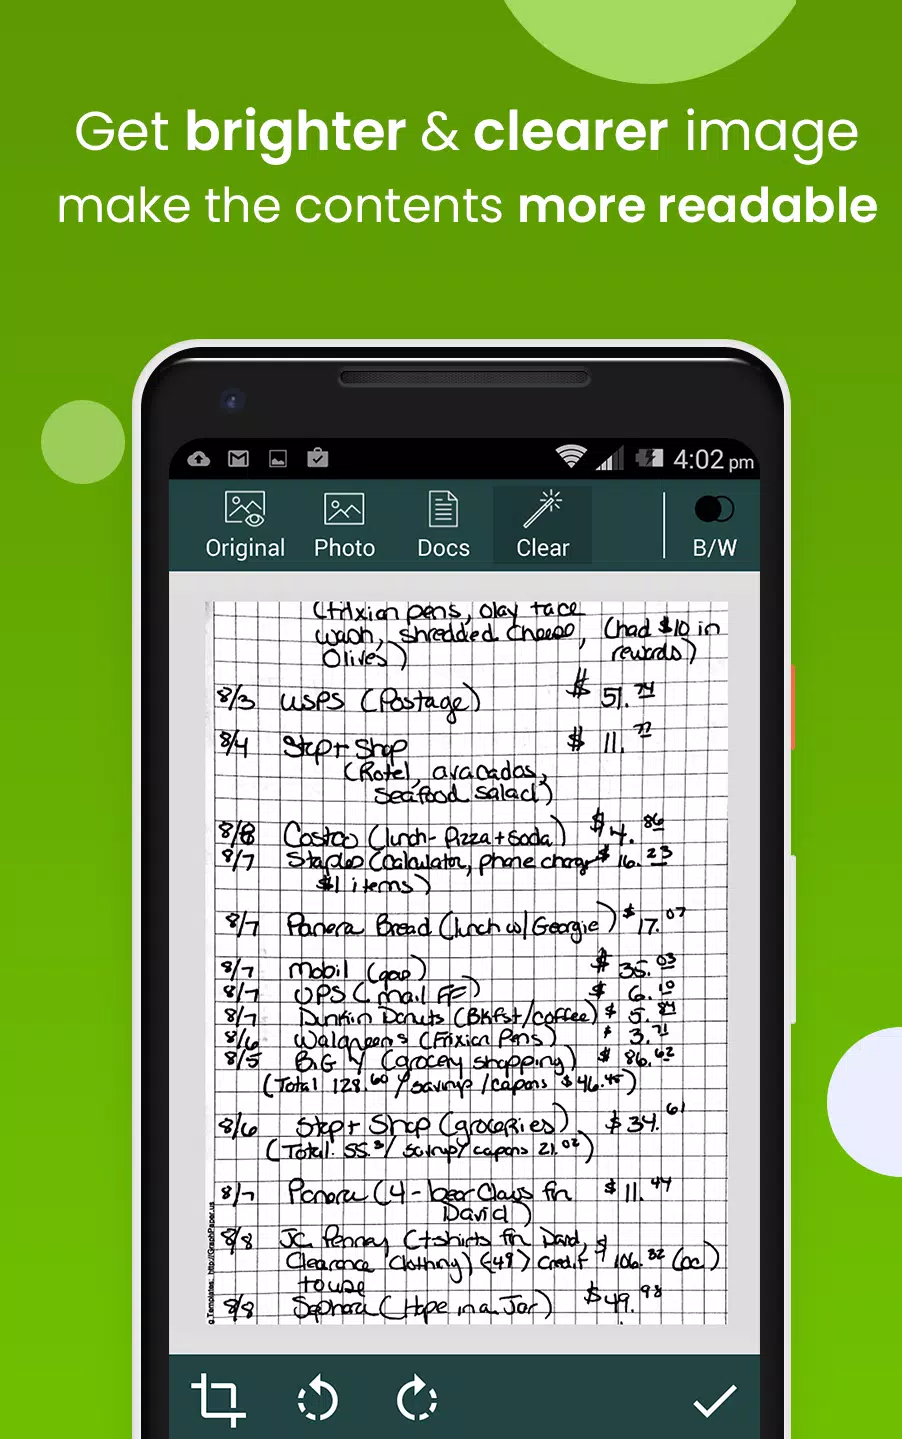 Get brighter & clearer image
make the contents more readable
4:02 pm
Original Photo Docs Clear B/W
(frixion pens, olay face
wash, shredded cheese, (had $10 in
Olives) rewards)
8/3 USPS (Postage) $ 51.74
8/4 Stop + Shop $ 11.77
(Rotel, avacados,
seafood salad)
8/8 Costco (lunch - Pizza + Soda) $ 4.86
8/7 Staples (calculator, phone charger $ 16.23
$1 items)
8/7 Panera Bread (lunch w/ Georgie) $ 17.07
8/7 Mobil (gas) $ 35.03
8/7 UPS (mail FF) $ 6.10
8/7 Dunkin Donuts (Bkfst/coffee) $ 5.84
8/6 Walgreens (Frixion Pens) $ 3.71
8/5 BiG Y (grocery shopping) $ 86.62
(Total 128.60 / savings / coupons $46.45)
8/6 Stop + Shop (groceries) $ 34.61
(Total: 55. / savings/ coupons 21.02)
8/7 Panera (4 - bear claws for $ 11.44
David)
8/8 JC Penney (t-shirts for David, $
Clearance Clothing) (-49) credit 106.82 (cc)
to use
8/8 Sephora (Hope in a Jar) $49.98
© Templates: http://GraphPaper.us